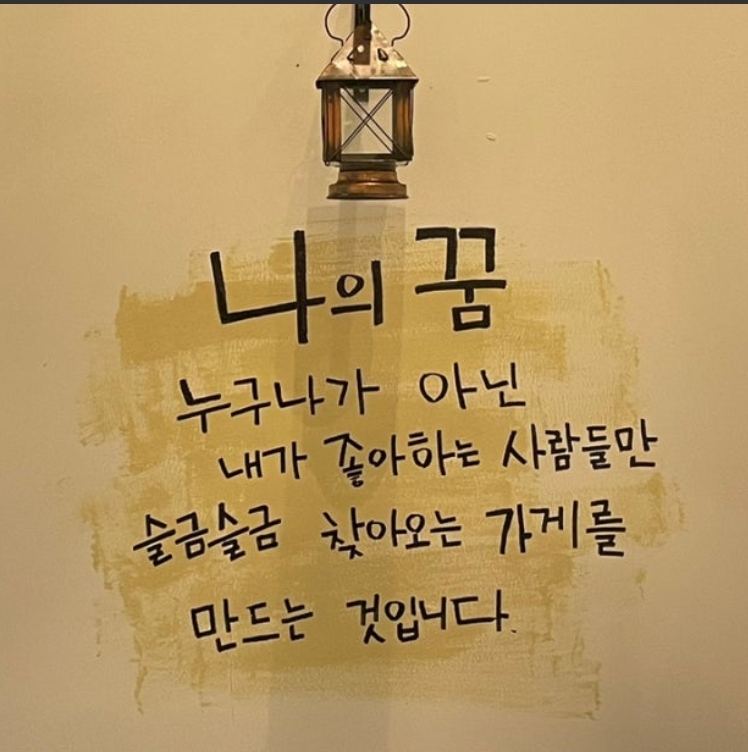 나의 꿈
누구나가 아닌
내가 좋아하는 사람들만
슬금슬금 찾아오는 가게를
만드는 것입니다.